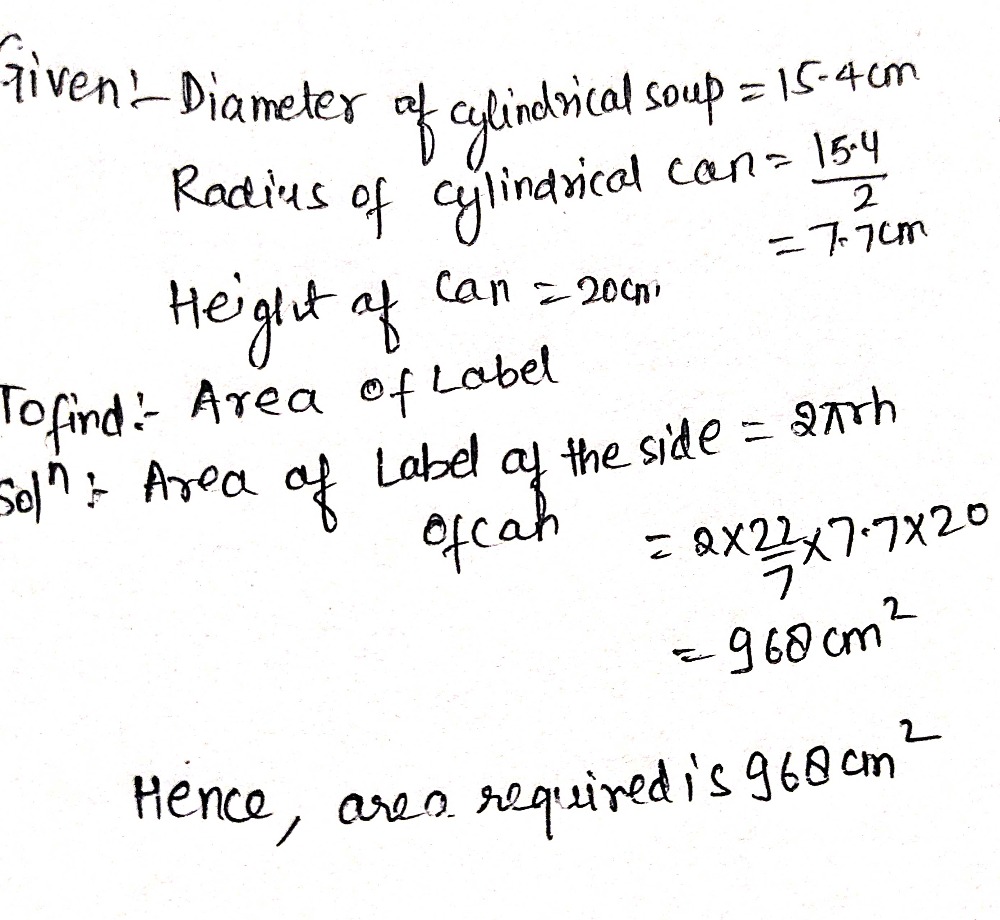 Given:- Diameter of cylindrical soup = 15.4cm
Radius of cylindrical can = 15.4/2
= 7.7cm
Height of can = 20cm.
To find:- Area of Label
Solⁿ:- Area of Label of the side = 2πrh
of can = 2×22/7×7.7×20
= 968 cm²
Hence, area required is 968 cm²